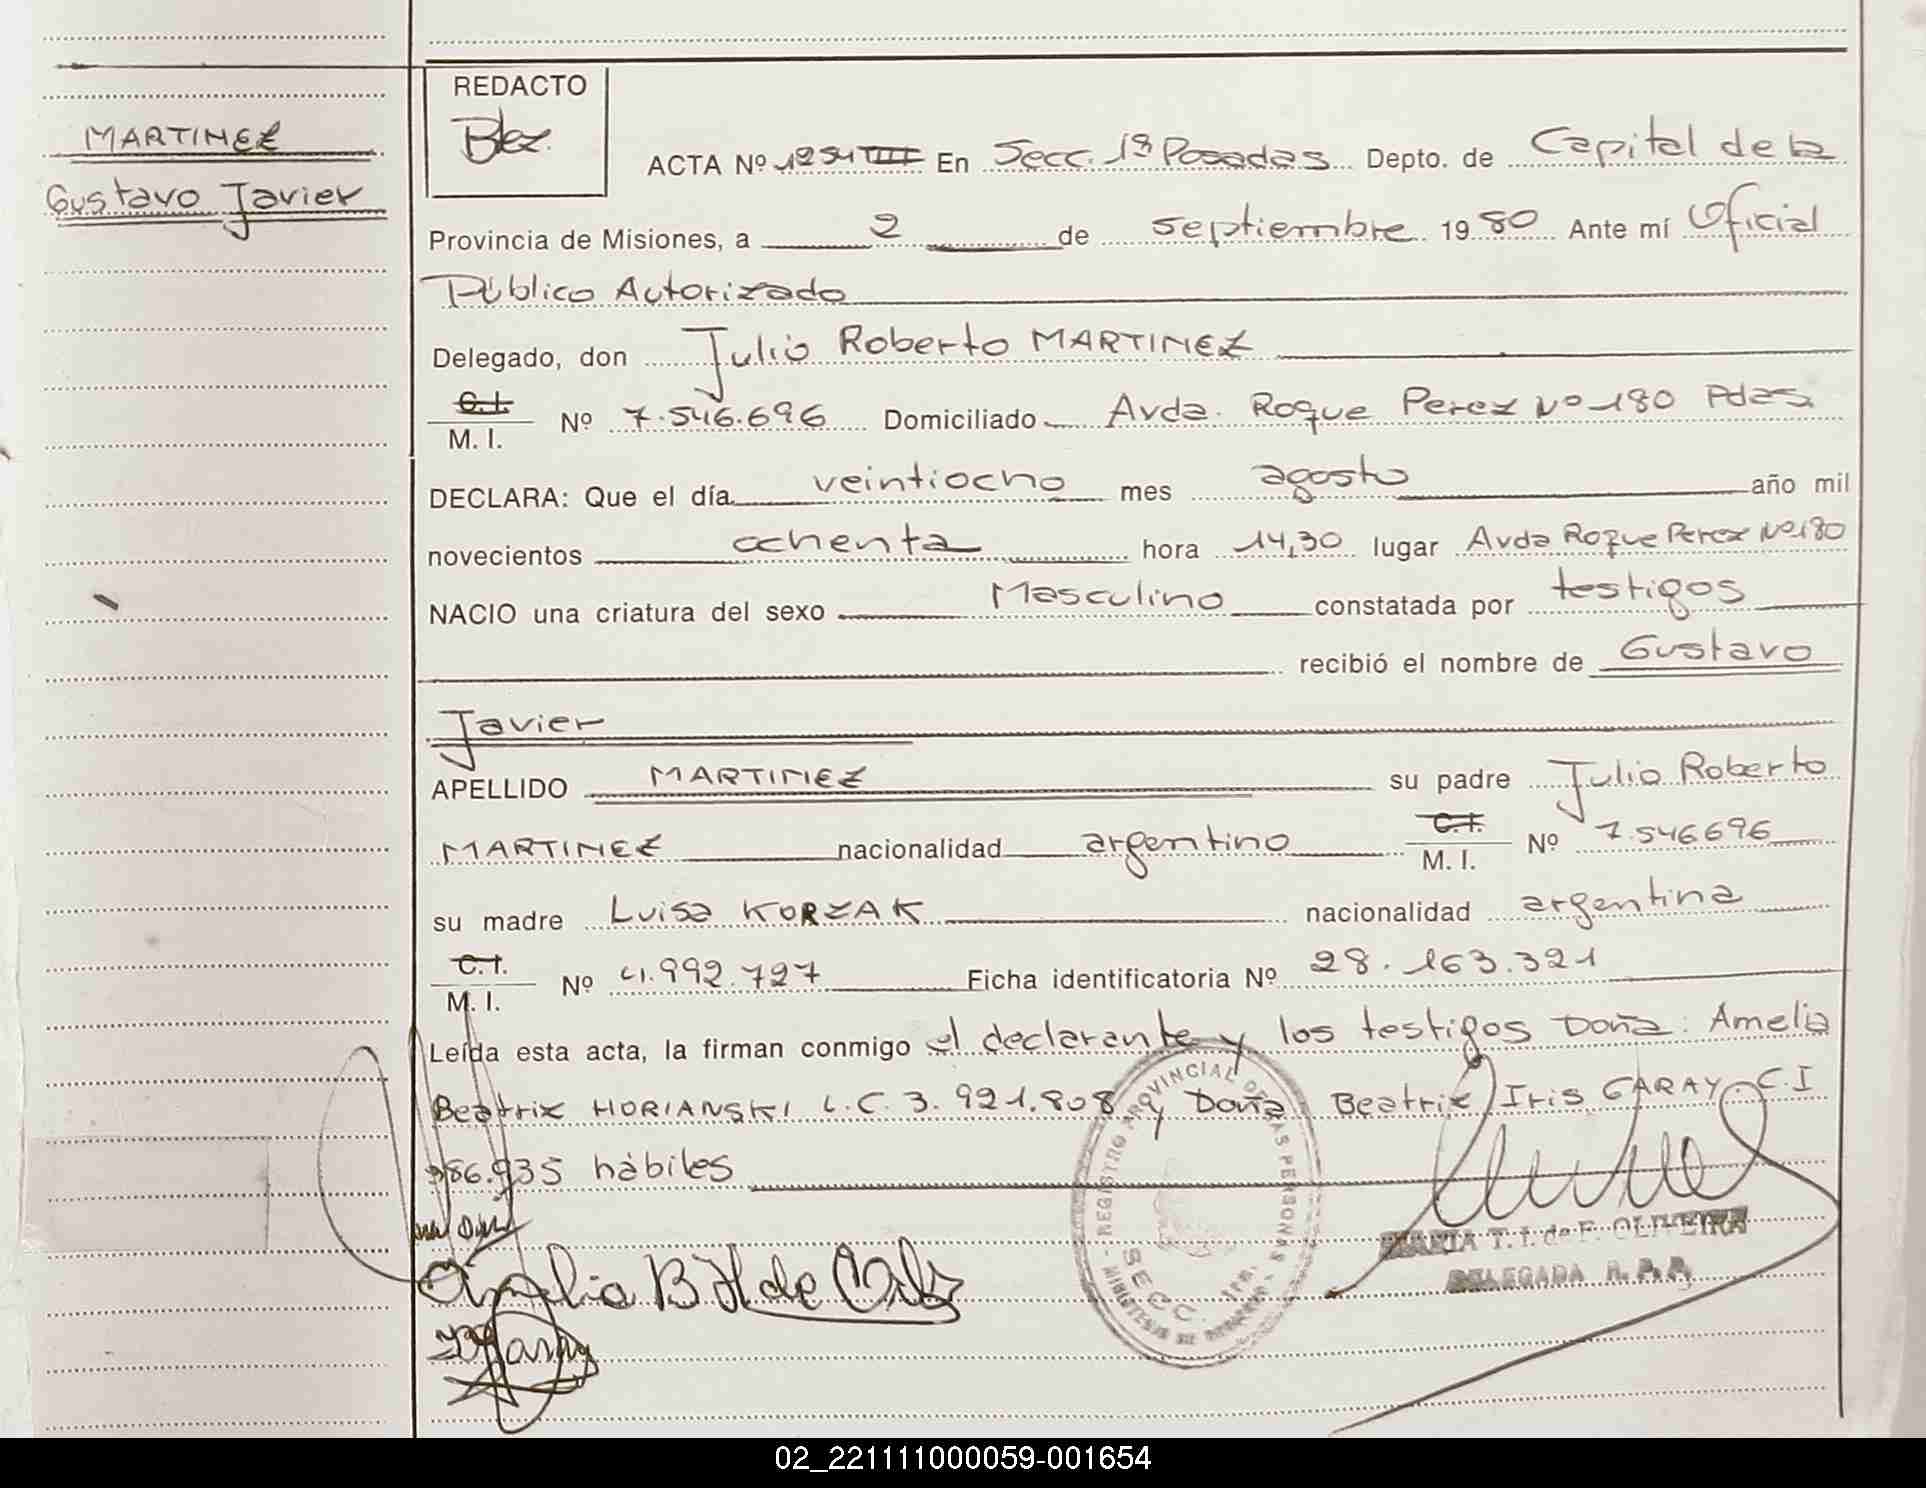 MARTINEZ
Gustavo Javier
REDACTO
ACTA Nº 1254 III En Secc. 1ª Posadas Depto. de Capital de la
Provincia de Misiones, a 2 de septiembre 1980 Ante mí Oficial
Público Autorizado
Delegado, don Julio Roberto MARTINEZ
C.I.
M. I. Nº 7.546.696 Domiciliado Avda. Roque Perez Nº 180 Pdas.
DECLARA: Que el día veintiocho mes agosto año mil
novecientos ochenta hora 14,30 lugar Avda Roque Perez Nº 180
NACIO una criatura del sexo Masculino constatada por testigos
recibió el nombre de Gustavo
Javier
APELLIDO MARTINEZ su padre Julio Roberto
MARTINEZ nacionalidad argentino C.I. M. I. Nº 7.546696
su madre Luisa KORZAK nacionalidad argentina
C.I.
M. I. Nº 4.992.727 Ficha identificatoria Nº 28.163.321
Leída esta acta, la firman conmigo el declarante y los testigos Doña: Amelia
Beatriz HORIANSKI L.C. 3.921.808 y Doña Beatriz Iris GARAY. C.I
386.935 hábiles
Amelia B H de
MARIA T. I. de F. OLIVEIRA
DELEGADA R. P. P.
REGISTRO PROVINCIAL DE LAS PERSONAS
SECC. 1RA.
02_221111000059-001654